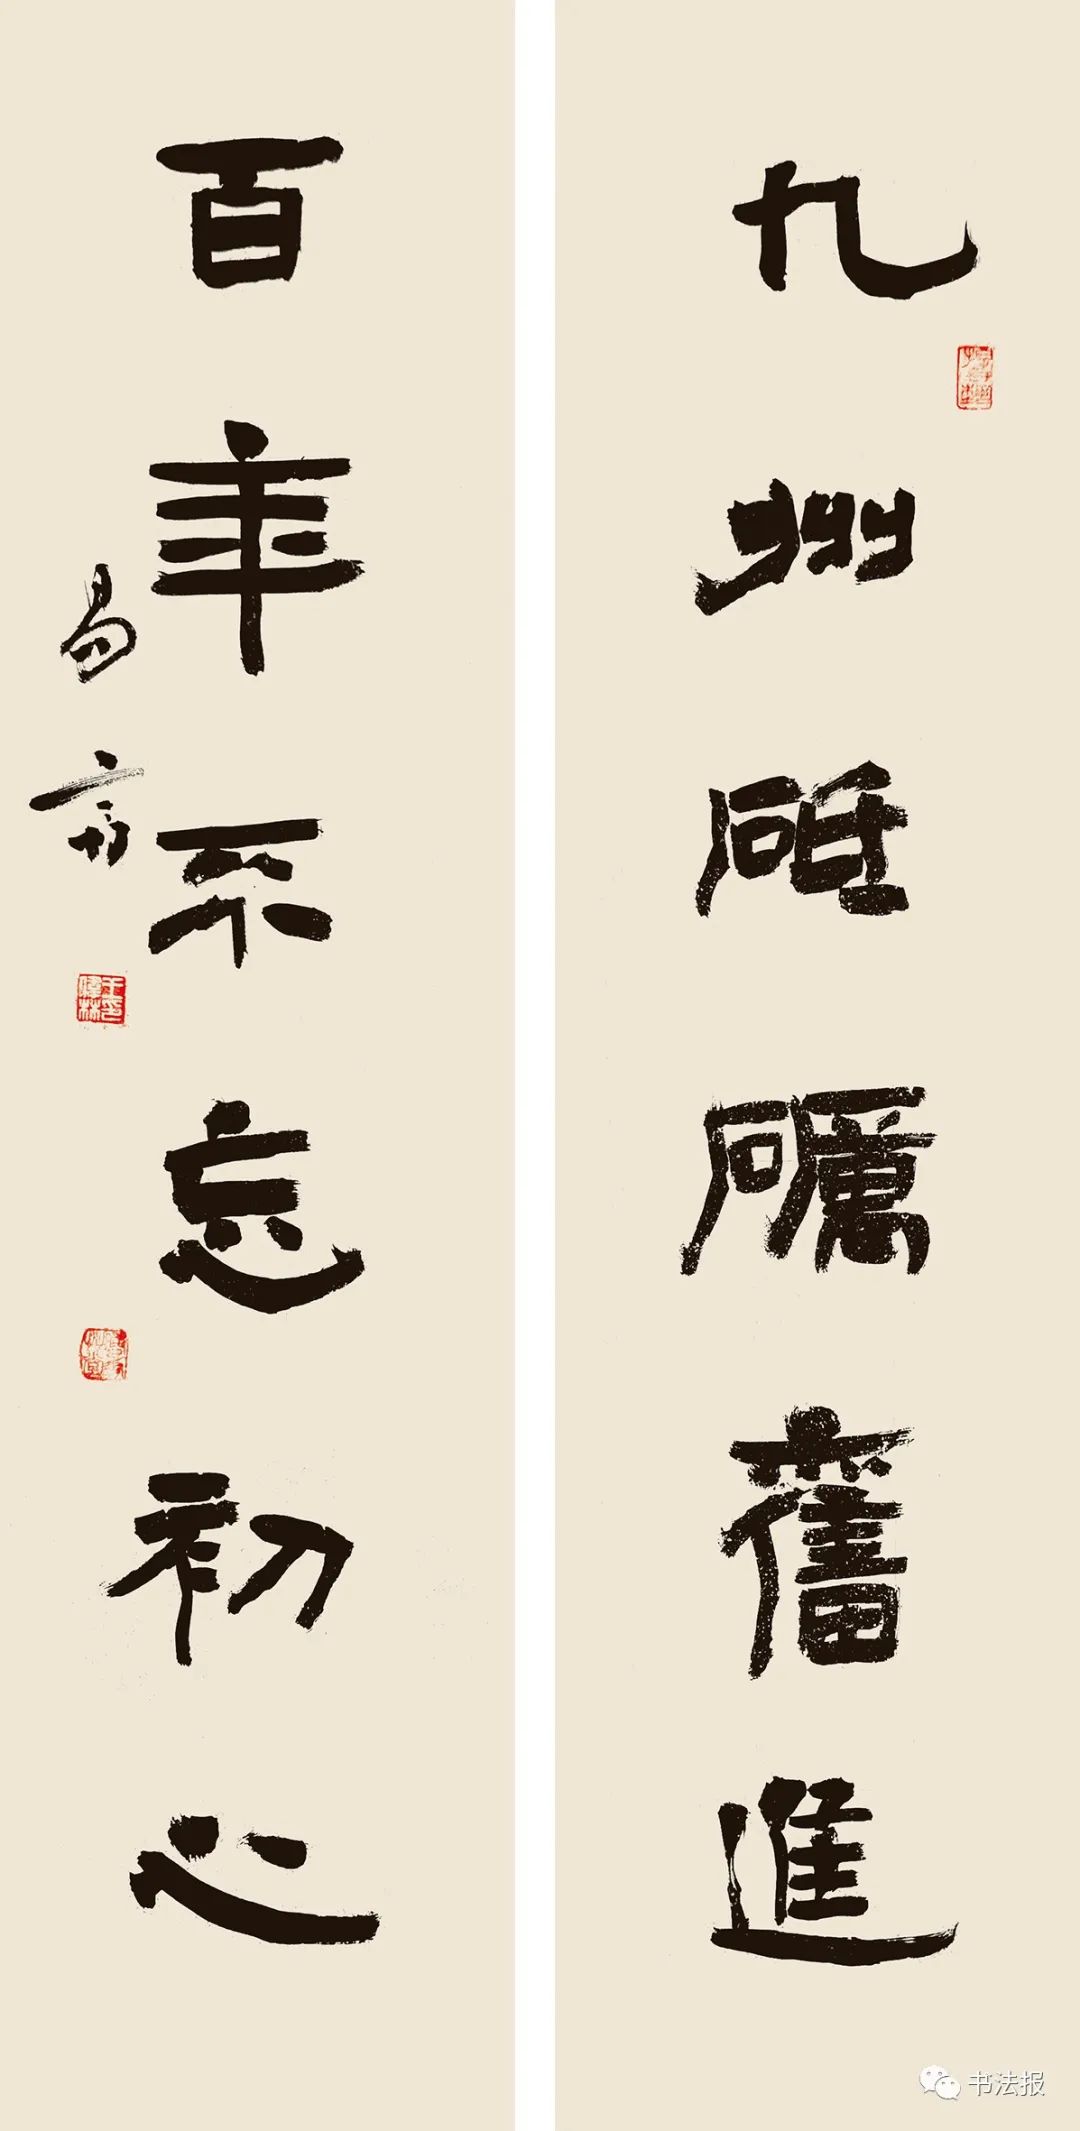 九州砥礪奮進
百年不忘初心
书法报